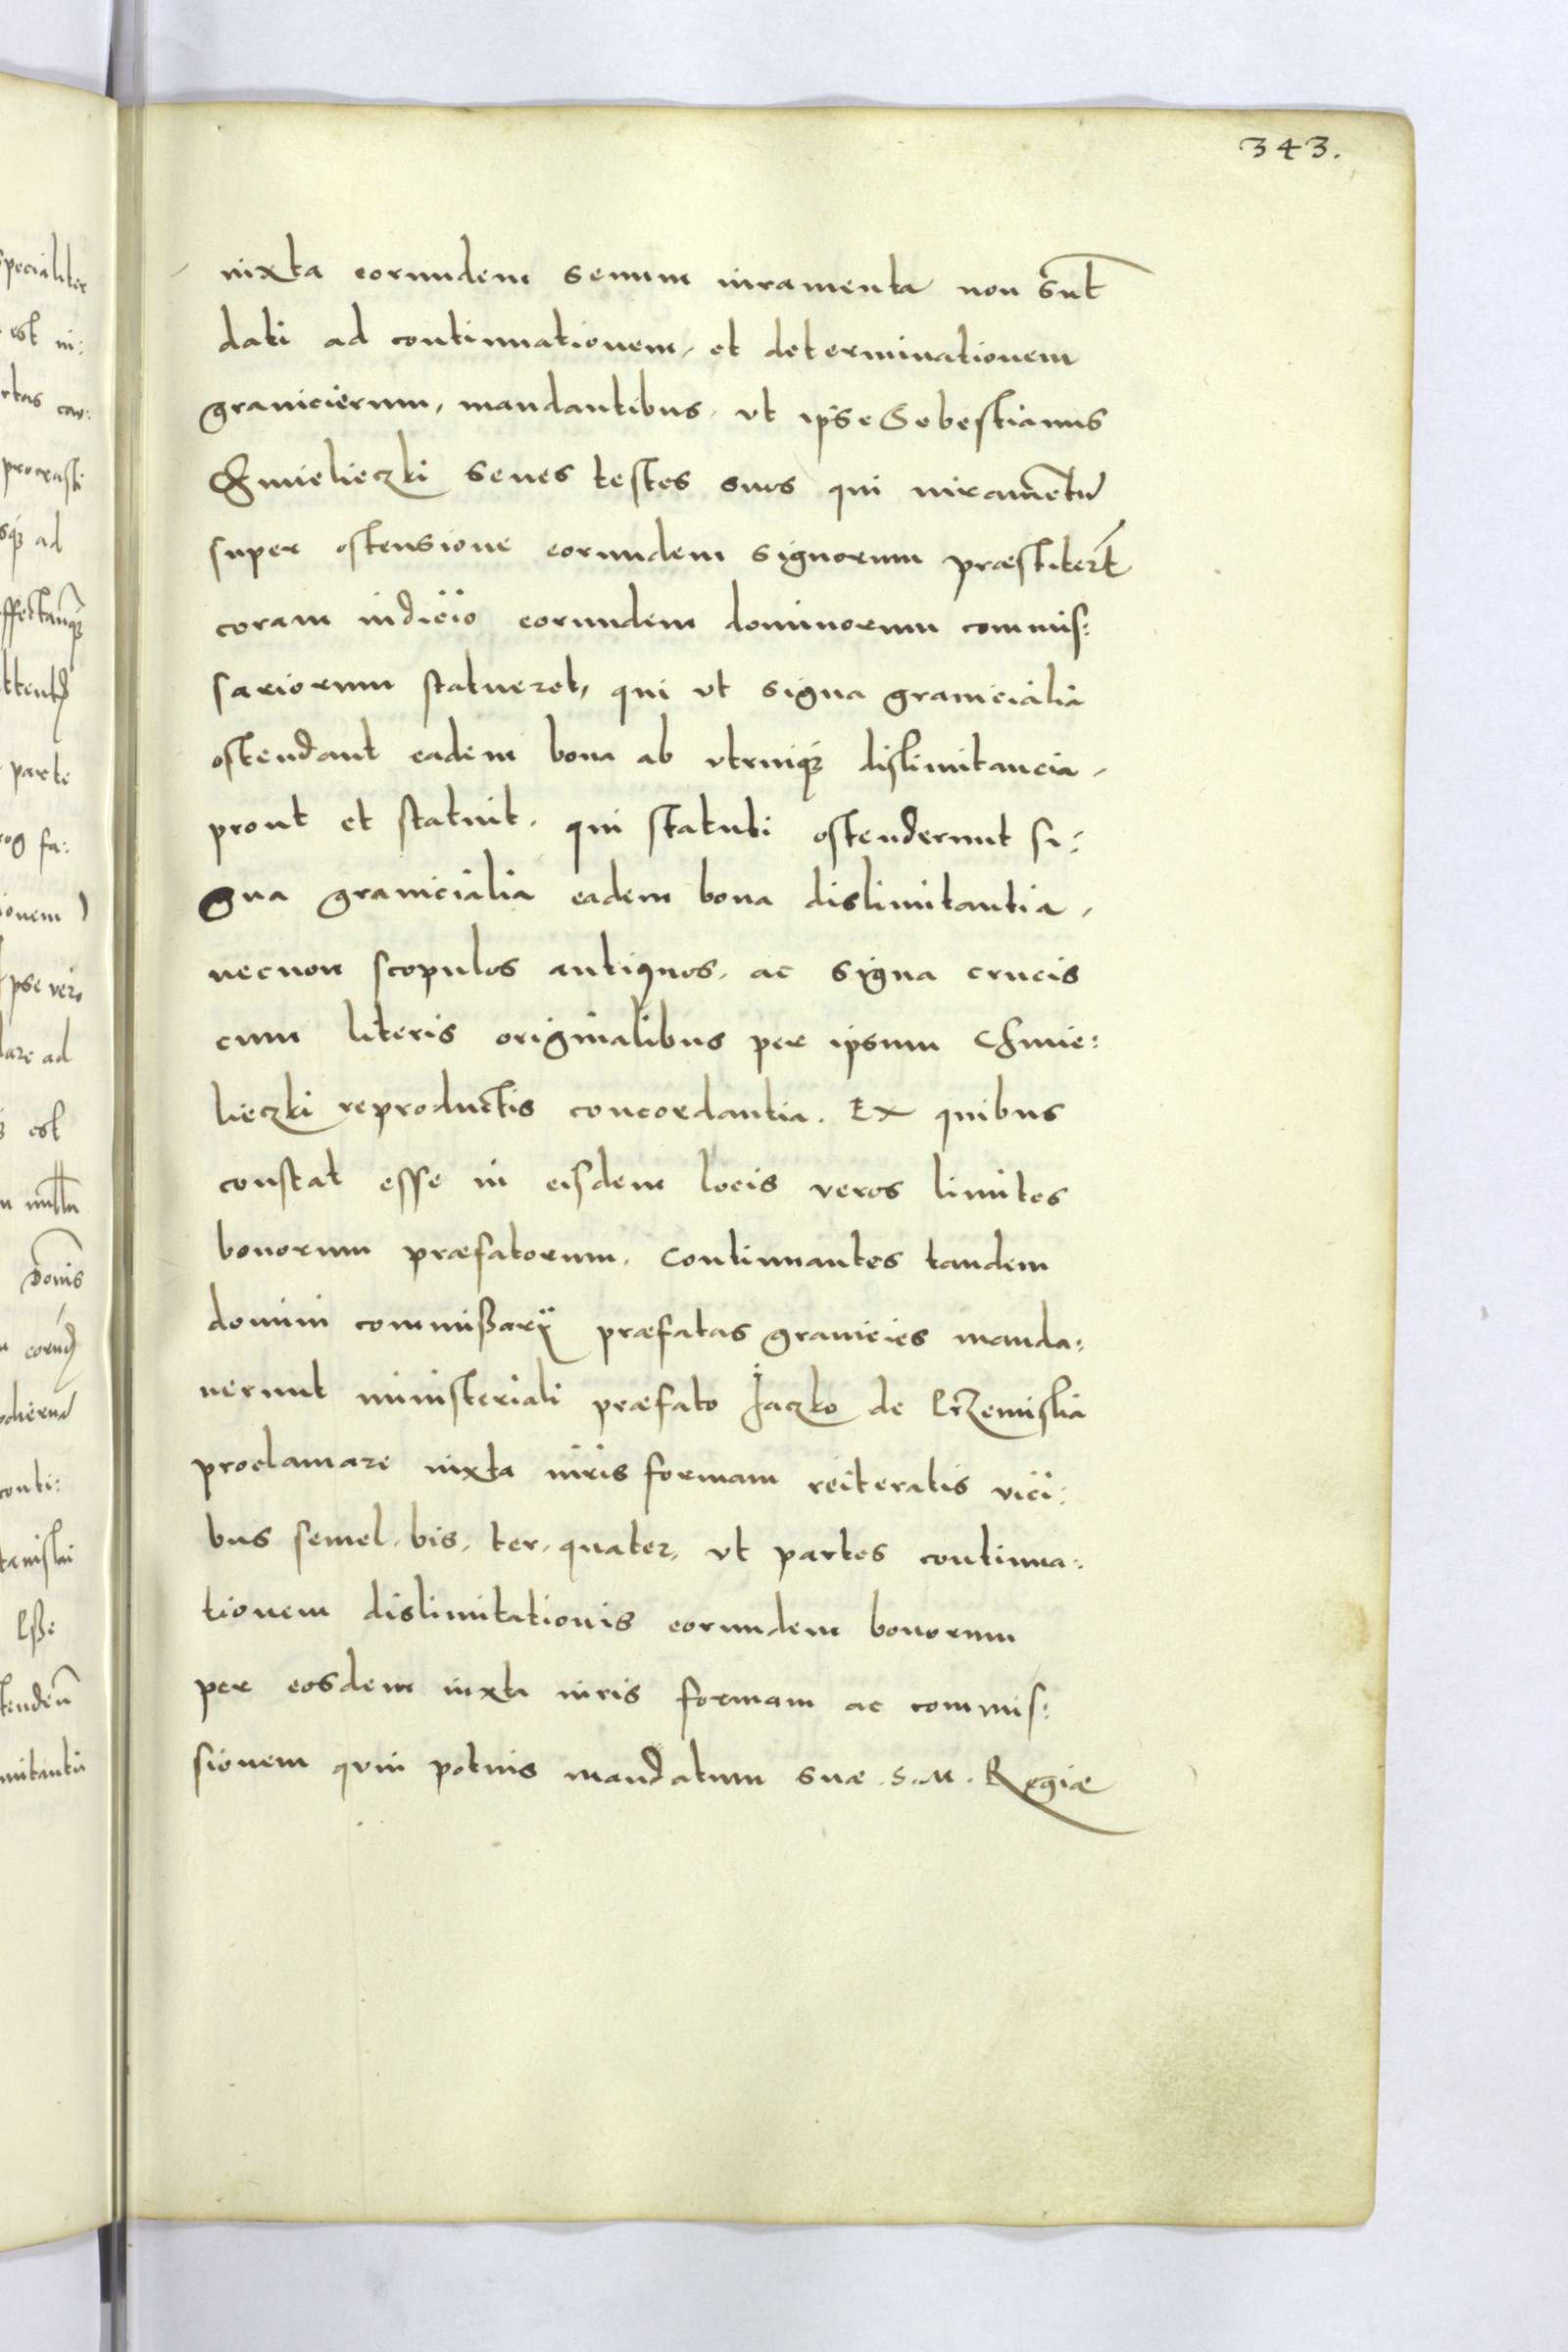 343.
iuxta eorundem senum iuramenta non sũt
dati ad continuationem, et determinationem
granicierum, mandantibus, vt ipse Sebestianus
Chmielieczki senes testes suos qui iuramẽtũ
super ostensione eorundem signorum præstiterũt
coram iudicio eorundem dominorum commis:
sariorum statueret, qui vt signa granicialia
ostendant eadem bona ab vtrinq₃ dislimitancia,
prout et statuit. qui statuti ostenderunt si:
gna granicialia eadem bona dislimitantia,
necnon scopulos antiquos, ac signa crucis
cum literis originalibus per ipsum Chmie:
lieczki reproductis concordantia. Ex quibus
constat esse in eisdem locis veros limites
bonorum præfatorum. Continuantes tandem
domini commißarij præfatas granicies manda:
uerunt ministeriali præfato Jaczko de Przemislia
proclamare iuxta iuris formam reiteratis vici:
bus semel, bis, ter, quater, vt partes continua:
tionem dislimitationis eorundem bonorum
per eosdem iuxta iuris formam ac commis:
sionem quin potuis mandatum suæ .S.M. Regiæ
specialiter
est in:
parte
ad
est
conti: